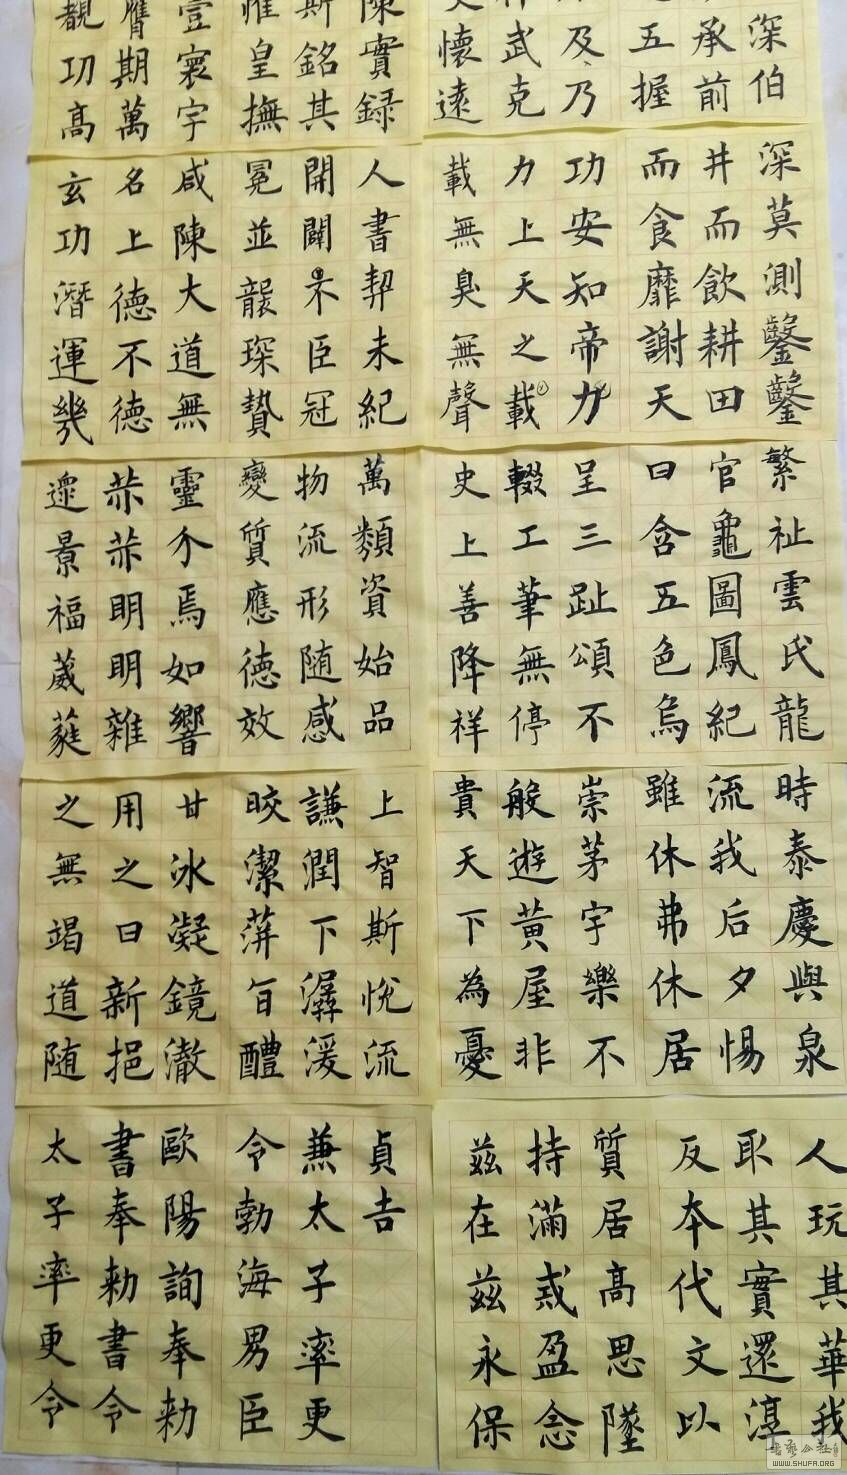 陳實録
斯銘其
惟皇撫
壹寰宇
膺期萬
覩功高
深伯
承前
五握
及乃
武克
懷遠
人書契未紀
開闢不臣冠
冕並襲琛贄
咸陳大道無
名上德不德
玄功潛運幾
深莫測鑿鑿
井而飲耕田
而食靡謝天
功安知帝力
力上天之載
載無臭無聲
萬類資始品
物流形随感
變質應德效
靈介焉如響
赫赫明明雜
遝景福葳蕤
繁祉雲氏龍
官龜圖鳳紀
日含五色烏
呈三趾頌不
輟工筆無停
史上善降祥
上智斯悅流
謙潤下潺湲
皎潔蓱旨醴
甘冰凝鏡澈
用之日新挹
之無竭道随
時泰慶與泉
流我后夕惕
雖休弗休居
崇茅宇樂不
般遊黃屋非
貴天下為憂
人玩其華我
取其實還淳
反本代文以
質居高思墜
持滿戒盈念
茲在茲永保
貞吉
兼太子率更
令勃海男臣
歐陽詢奉勅
書奉勅書令
太子率更令
WWW.SHUFA.ORG